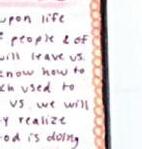 upon life
people & of
will leave us.
know how to
used to
vs. we will
realize
od is doing